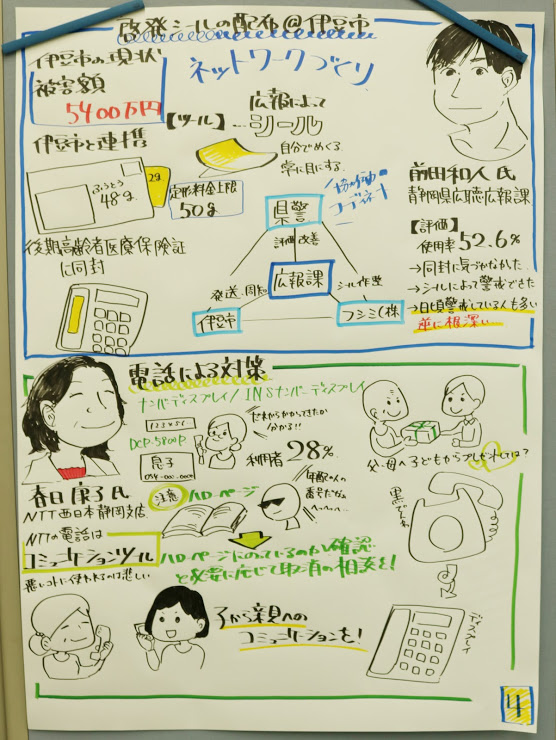 啓発シールの配布@伊豆市
伊豆市の現状
被害額
5400万円
ネットワークづくり
【ツール】
広報によって
シール
自分でめくる
卓に目にする
伊豆市と連携
ふうとう
48g
2g
定形料金上限
50g
後期高齢者医療保険証
に同封
協働の
コーディネート
県警
評価改善
広報課
発送・周知
シール作製
伊豆市
フジミ(株
前田和人氏
静岡県広聴広報課
【評価】
使用率52.6%
→同封に気づかなかった
→シールによって警戒できた
→日頃警戒している人も多い
逆に根深い
電話による対策
ナンバーディスプレイ/INSナンバーディスプレイ
123456
DCP-5800P
息子
だれからかかってきたか
分かる!!
利用者28%
父・母へ子どもからプレゼントしては?
春日
氏
NTT西日本静岡支店
NTTの電話は
コミュニケーションツール
悲しいコトに使われるのは悲しい
注意
ハローページ
年配の人の
番号だな
ハローページにのっているのか確認
と必要に応じて
の相談を!
黒でんわ
ディスプレイ
子から親への
コミュニケーションを!
4